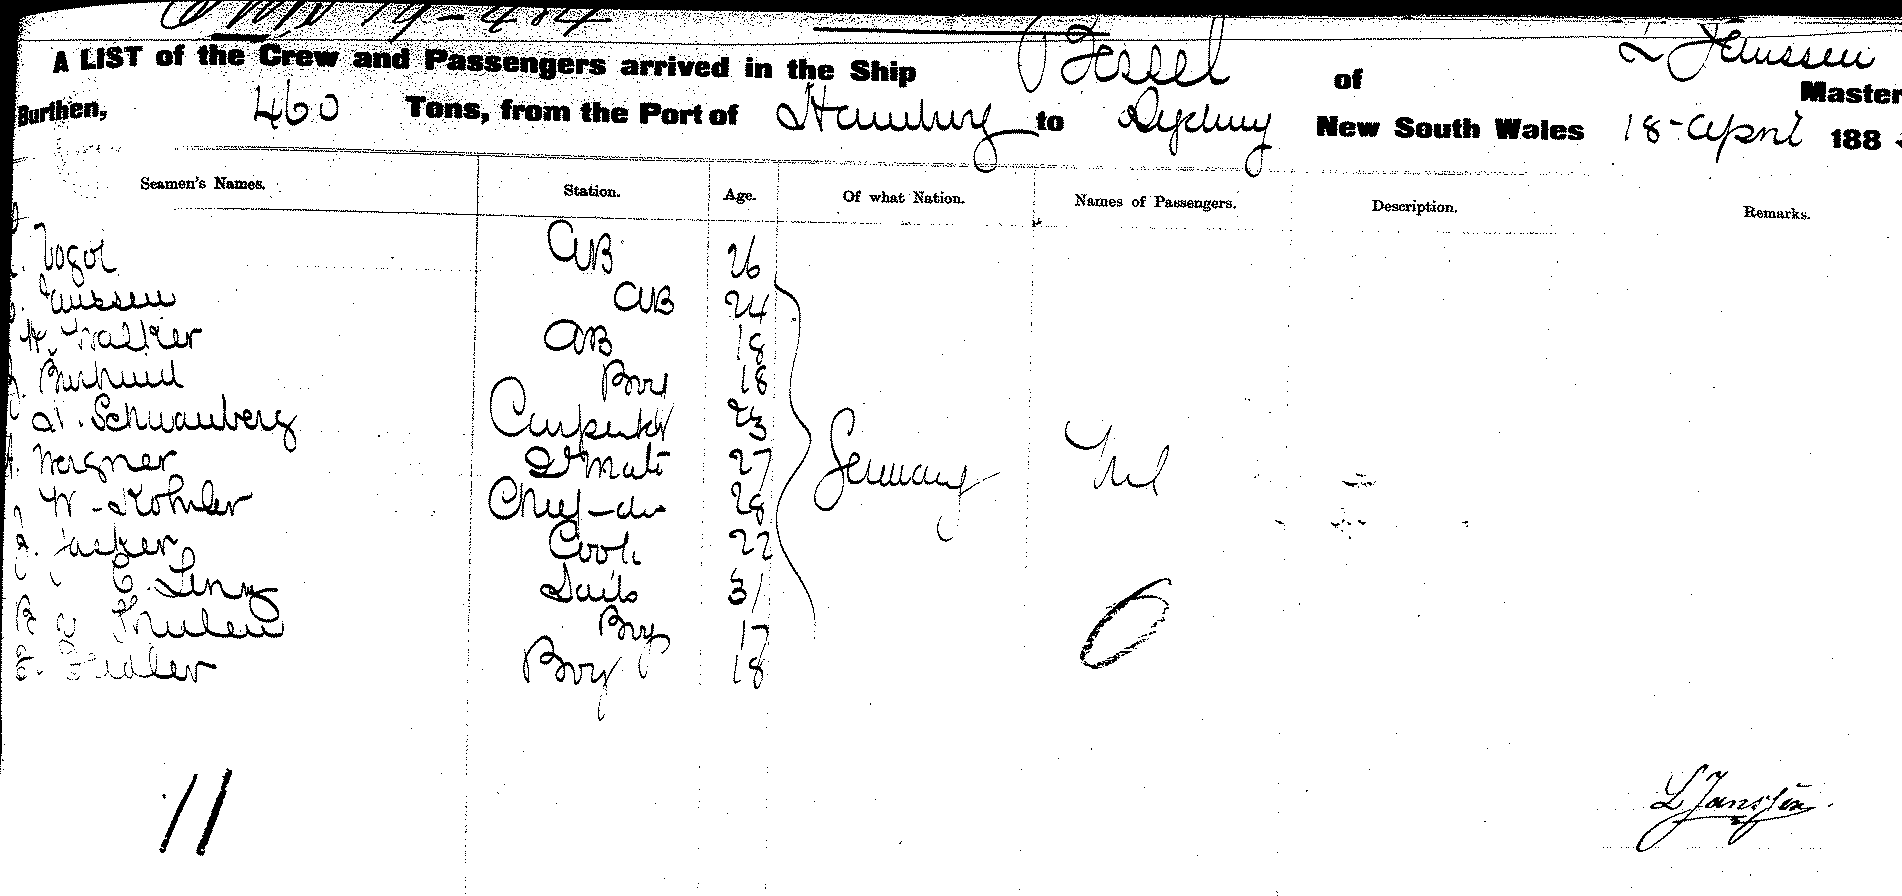 A LIST of the Crew and Passengers arrived in the Ship Tessel of L Janssen Master
Burthen, 460 Tons, from the Port of Hamburg to Sydney New South Wales 18 April 188
Seamen's Names. Station. Age. Of what Nation. Names of Passengers. Description. Remarks.
Vogel AB 26
Janssen AB 24
H. Walker AB 18
Boy 18
A. Schwauberg Carpenter 23
Wagner 2d Mate 27 Germany Nil
W. Kohler Chief do 28
Cook 22
C. Lenz Sails 31
Boy 17 0
E. Fiedler Boy 18
11
L Janssen.